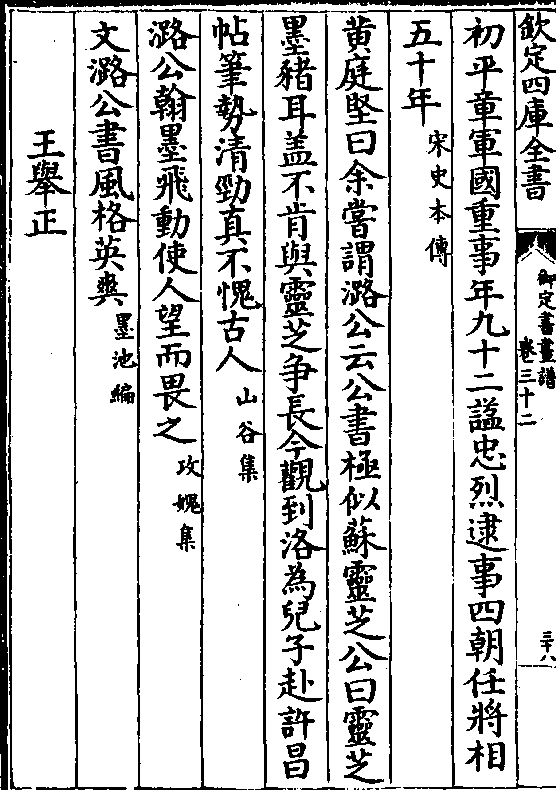 欽定四庫全書
御定書畫譜
卷三十二
三十八
初平章軍國重事年九十二諡忠烈逮事四朝任將相
五十年宋史本傳
黄庭堅曰余嘗謂潞公云公書極似蘇靈芝公曰靈芝
墨豬耳盖不肯與靈芝争長今觀到洛為兒子赴許昌
帖筆勢清勁真不愧古人山谷集
潞公翰墨飛動使人望而畏之攻媿集
文潞公書風格英爽墨池編
王舉正